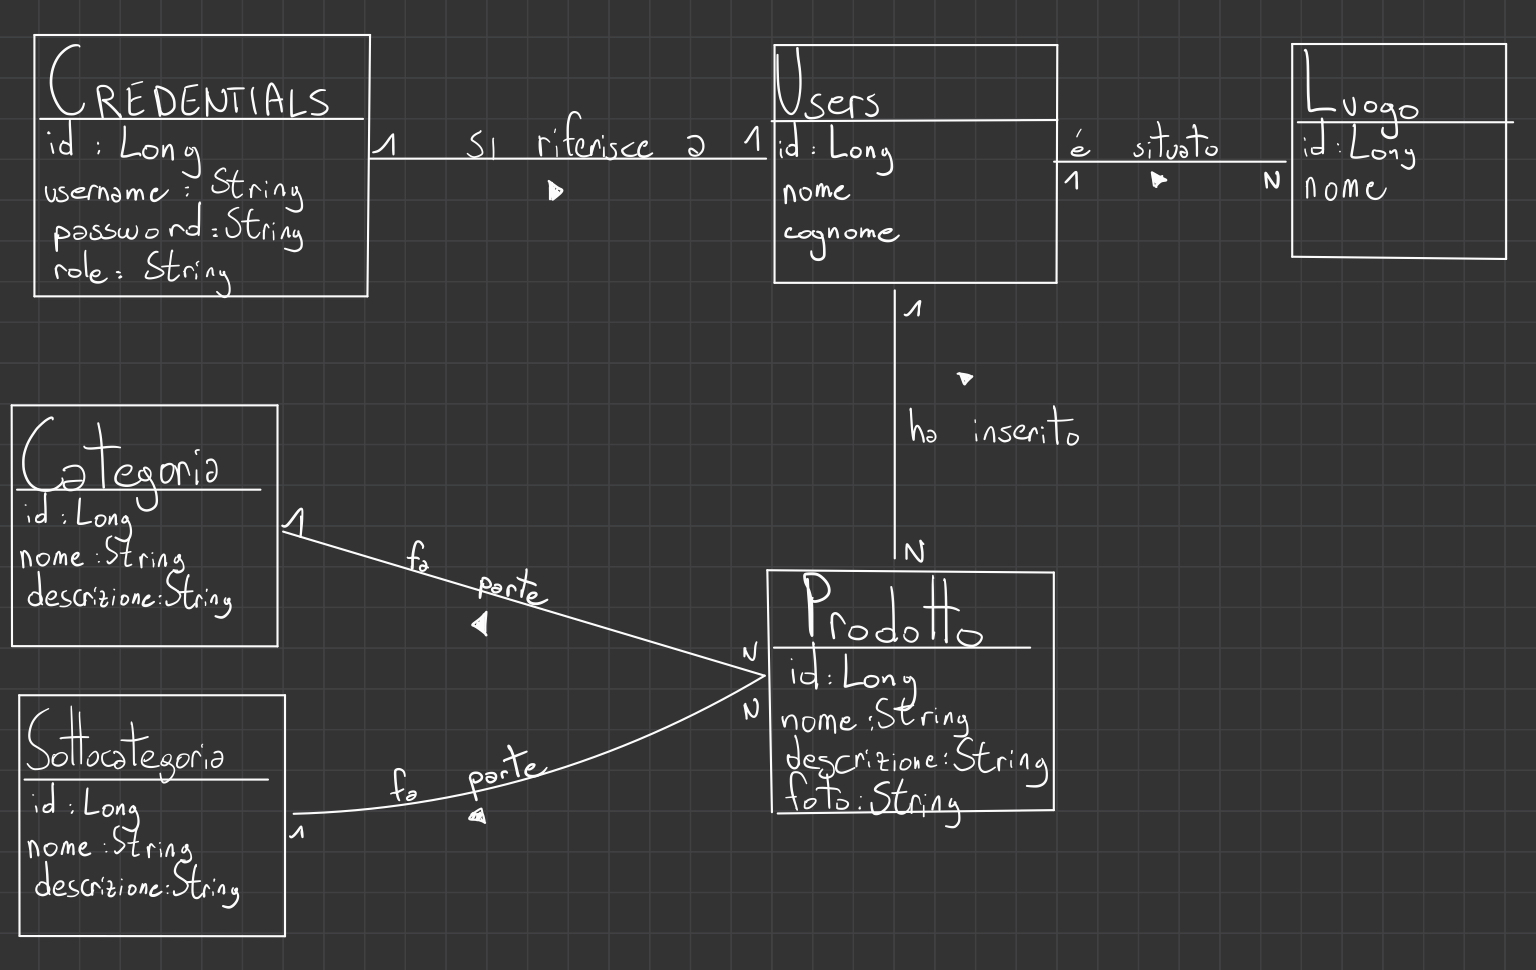 CREDENTIALS
id : Long
username : String
password : String
role : String
1 si riferisce a 1
Users
id : Long
nome
cognome
é situato
1 N
Luogo
id : Long
nome
1
ha inserito
N
Categoria
id : Long
nome : String
descrizione : String
1
fa parte
N
Prodotto
id : Long
nome : String
descrizione : String
foto : String
Sottocategoria
id : Long
nome : String
descrizione : String
1
fa parte
N